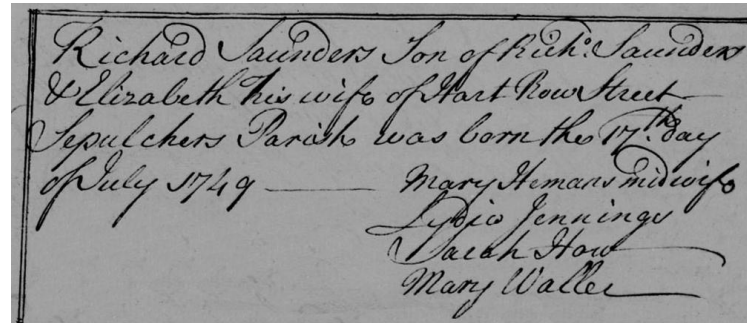 Richard Saunders Son of Richd. Saunders
& Elizabeth his wife of Hart Row Street
Sepulchers Parish was born the 17th. day
of July 1749 —— Mary Hemans midwife
Lydia Jennings
Sarah How
Mary Waller